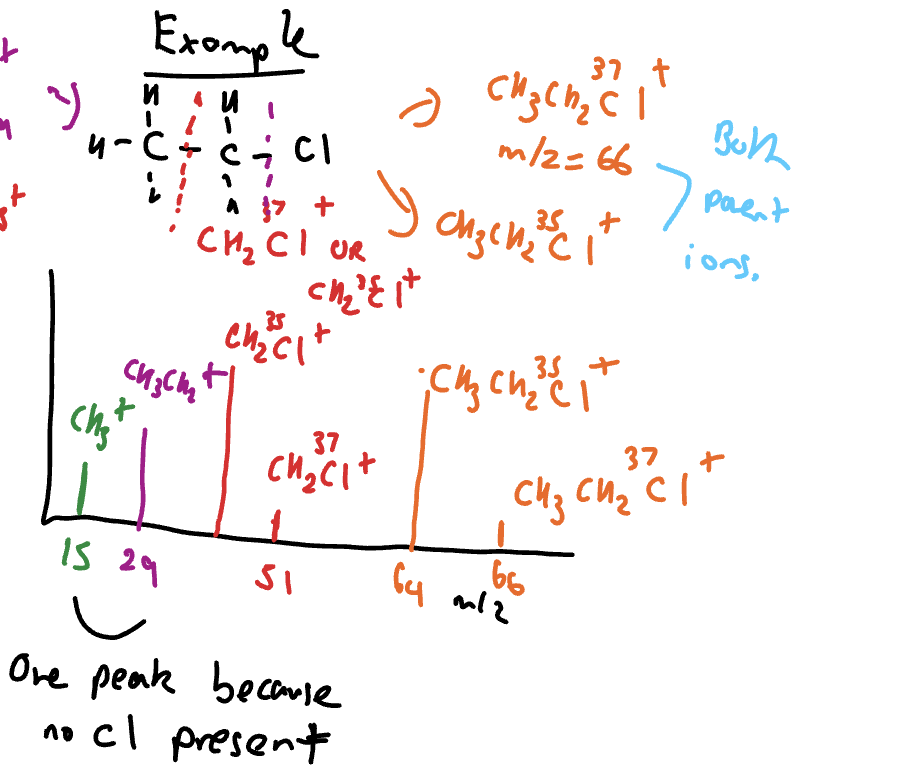 Example
H H
H - C - C - Cl
CH₂³⁷Cl⁺ OR
CH₂³⁵Cl⁺
CH₃CH₂³⁷Cl⁺
m/z = 66
CH₃CH₂³⁵Cl⁺
Both
parent
ions.
CH₃⁺
CH₃CH₂⁺
CH₂³⁵Cl⁺
CH₂³⁷Cl⁺
CH₃CH₂³⁵Cl⁺
CH₃CH₂³⁷Cl⁺
15 29 51 64 66
m/z
One peak because
no Cl present